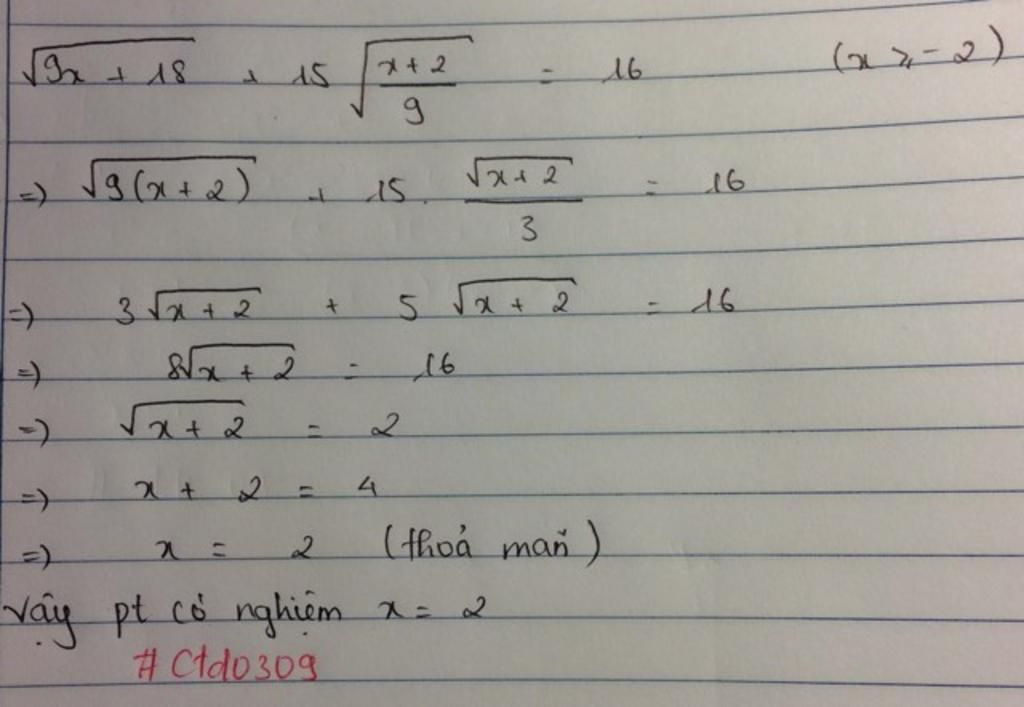 √(9x + 18) + 15 √((x+2)/9) = 16 (x ≥ -2)
=) √(9(x+2)) + 15. √(x+2)/3 = 16
=) 3√(x+2) + 5 √(x+2) = 16
=) 8√(x+2) = 16
=) √(x+2) = 2
=) x + 2 = 4
=) x = 2 (thoả mãn)
vậy pt có nghiệm x = 2
#Ctd0309